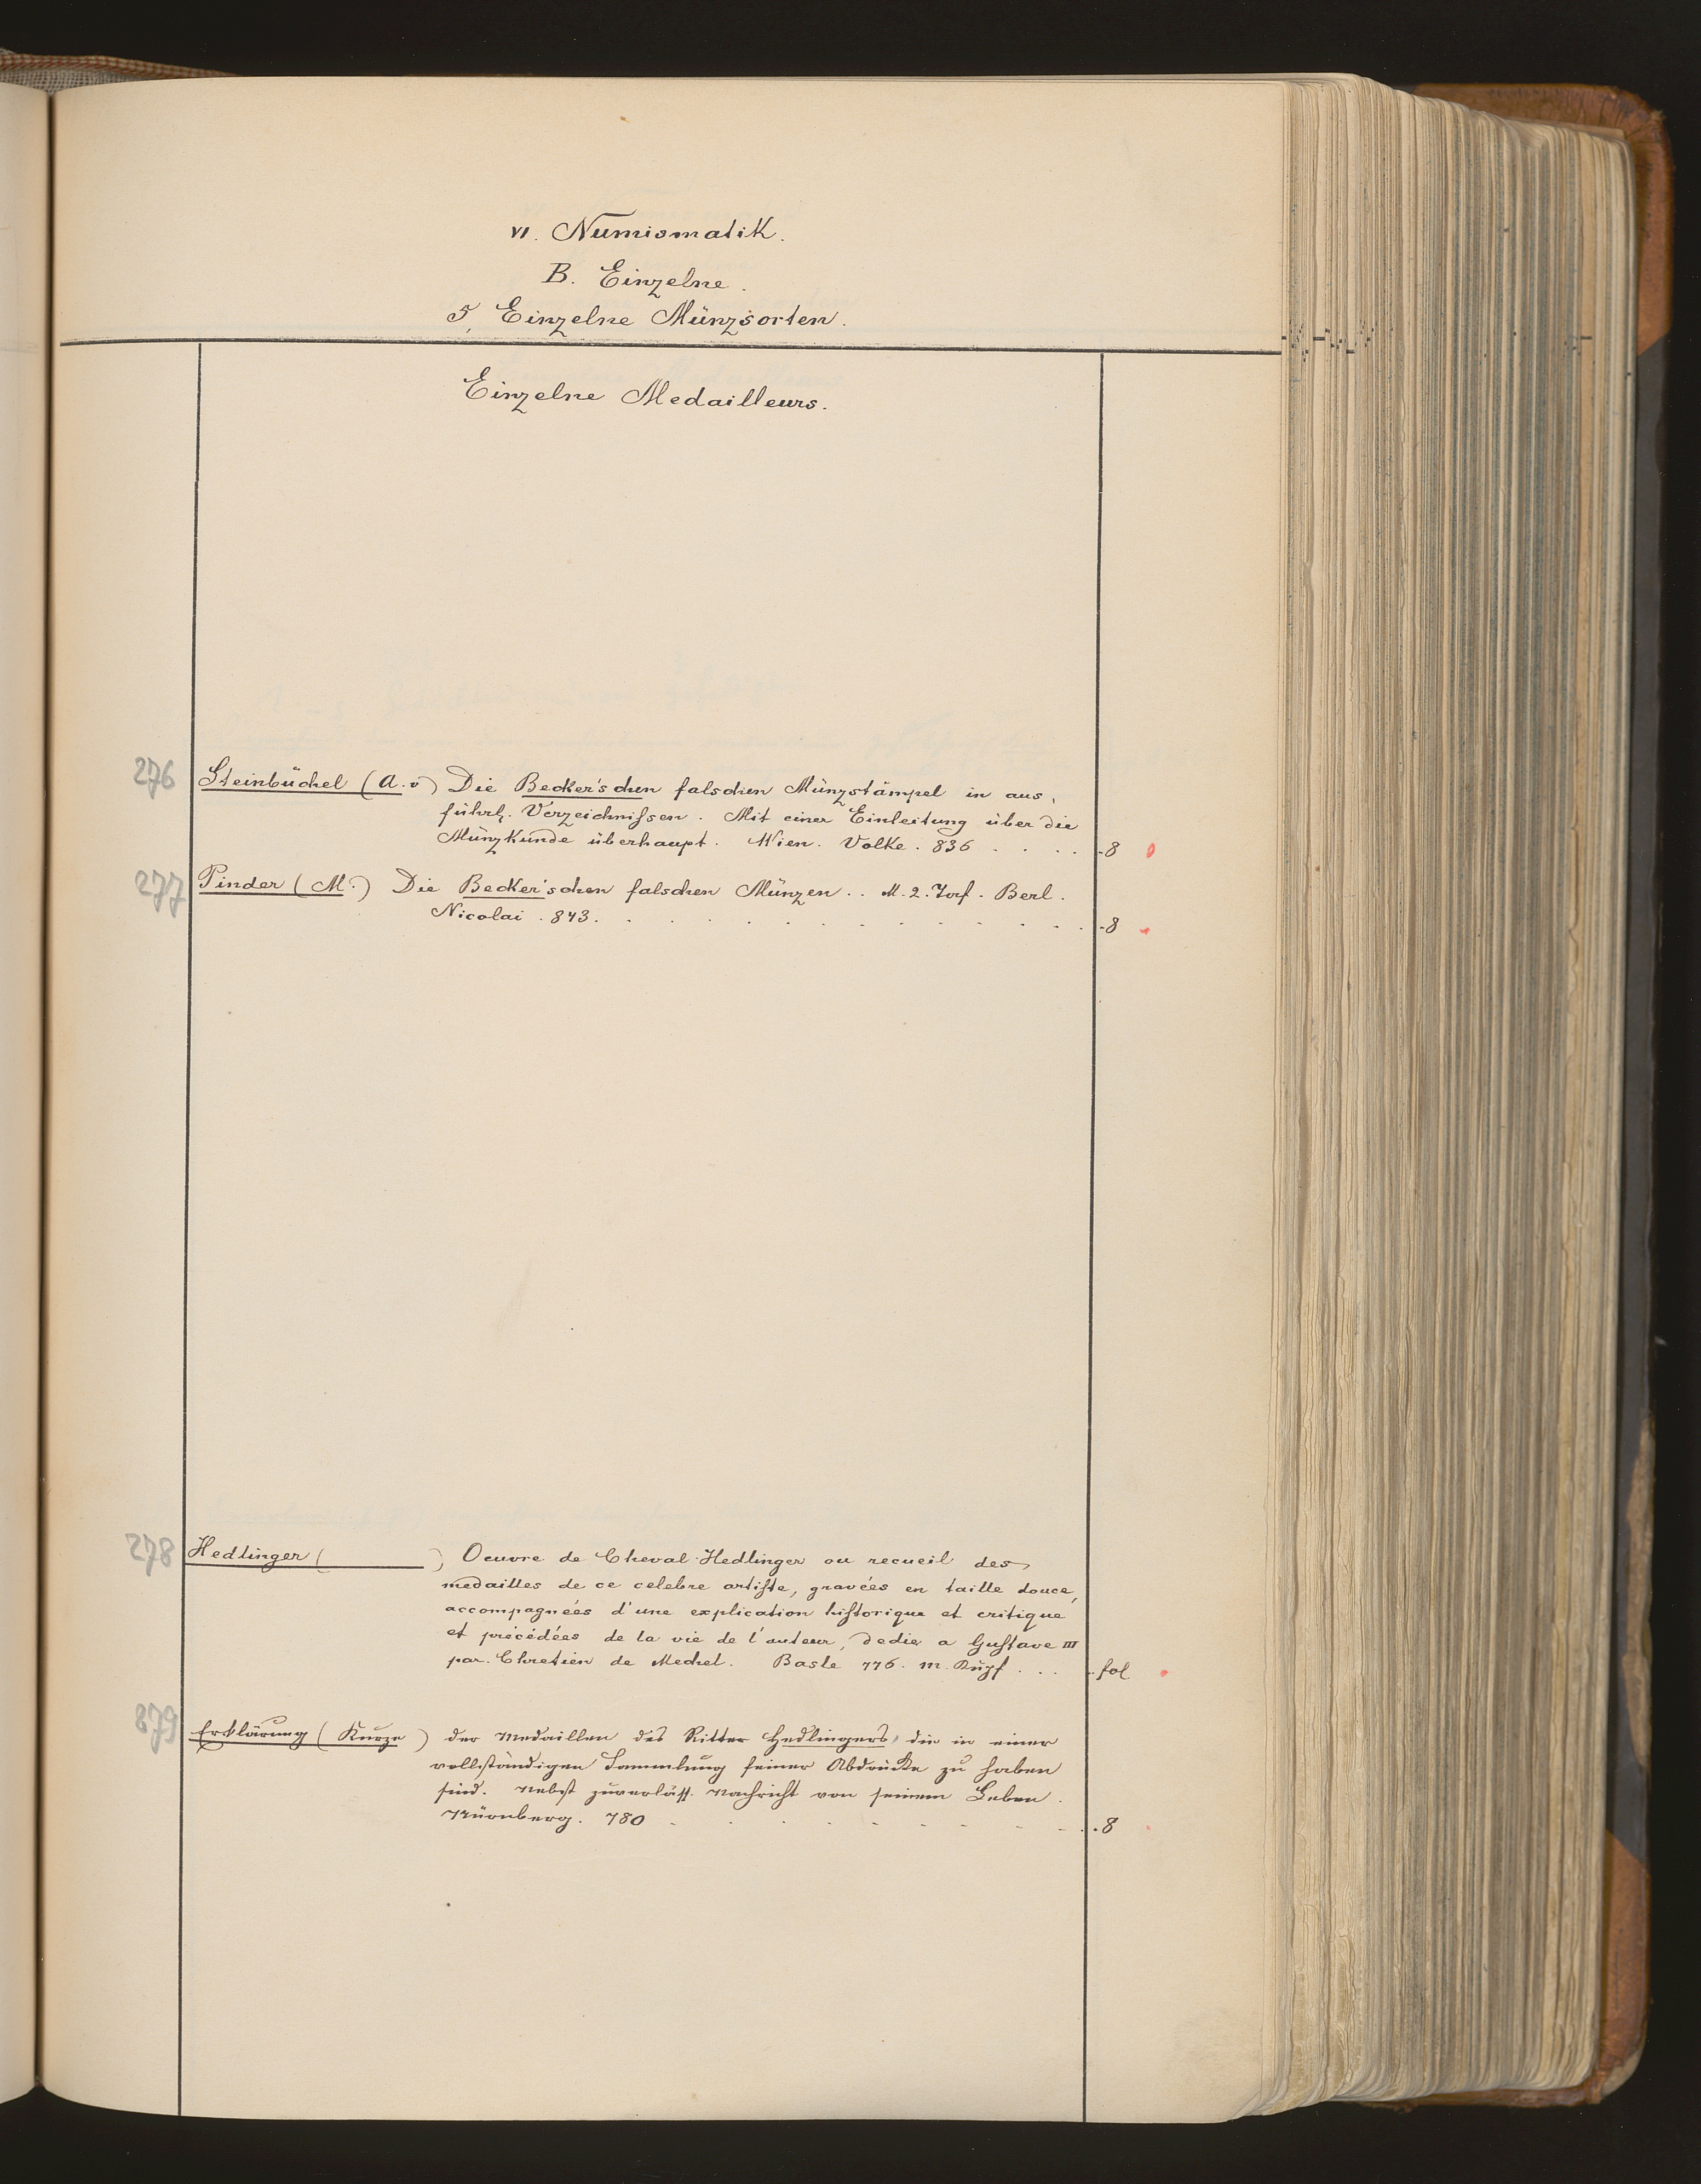 VI. Numismatik.
B. Einzelne.
5, Einzelne Münzsorten.
Einzelne Medailleurs.
276 Steinbüchel (A. v) Die Becker'schen falschen Münzstämpel in aus,
führl. Verzeichnißen. Mit einer Einleitung über die
Münzkunde überhaupt. Wien. Volke. 836 . . . . 8
277 Pinder (M.) Die Becker'schen falschen Münzen. . M. 2. Taf. Berl.
Nicolai. 843. . . . . . . . . . . . . 8
278 Hedlinger ( ) Oeuvre de Cheval Hedlinger ou recueil des
medailles de ce celebre artiste, gravées en taille douce,
accompagnées d'une explication historique et critique
et précédées de la vie de l'auteur, dedie a Gustave III
par. Chretien de Mechel. Basle 776. m. Kupf . . . fol
279 Erklärung (Kurze) der Medaillen des Ritter Hedlingers, die in einer
vollständigen Sammlung seiner Abdrücke zu haben
sind. Nebst zuverläss. Nachricht von seinem Leben.
Nürnberg. 780 . . . . . . . . . 8